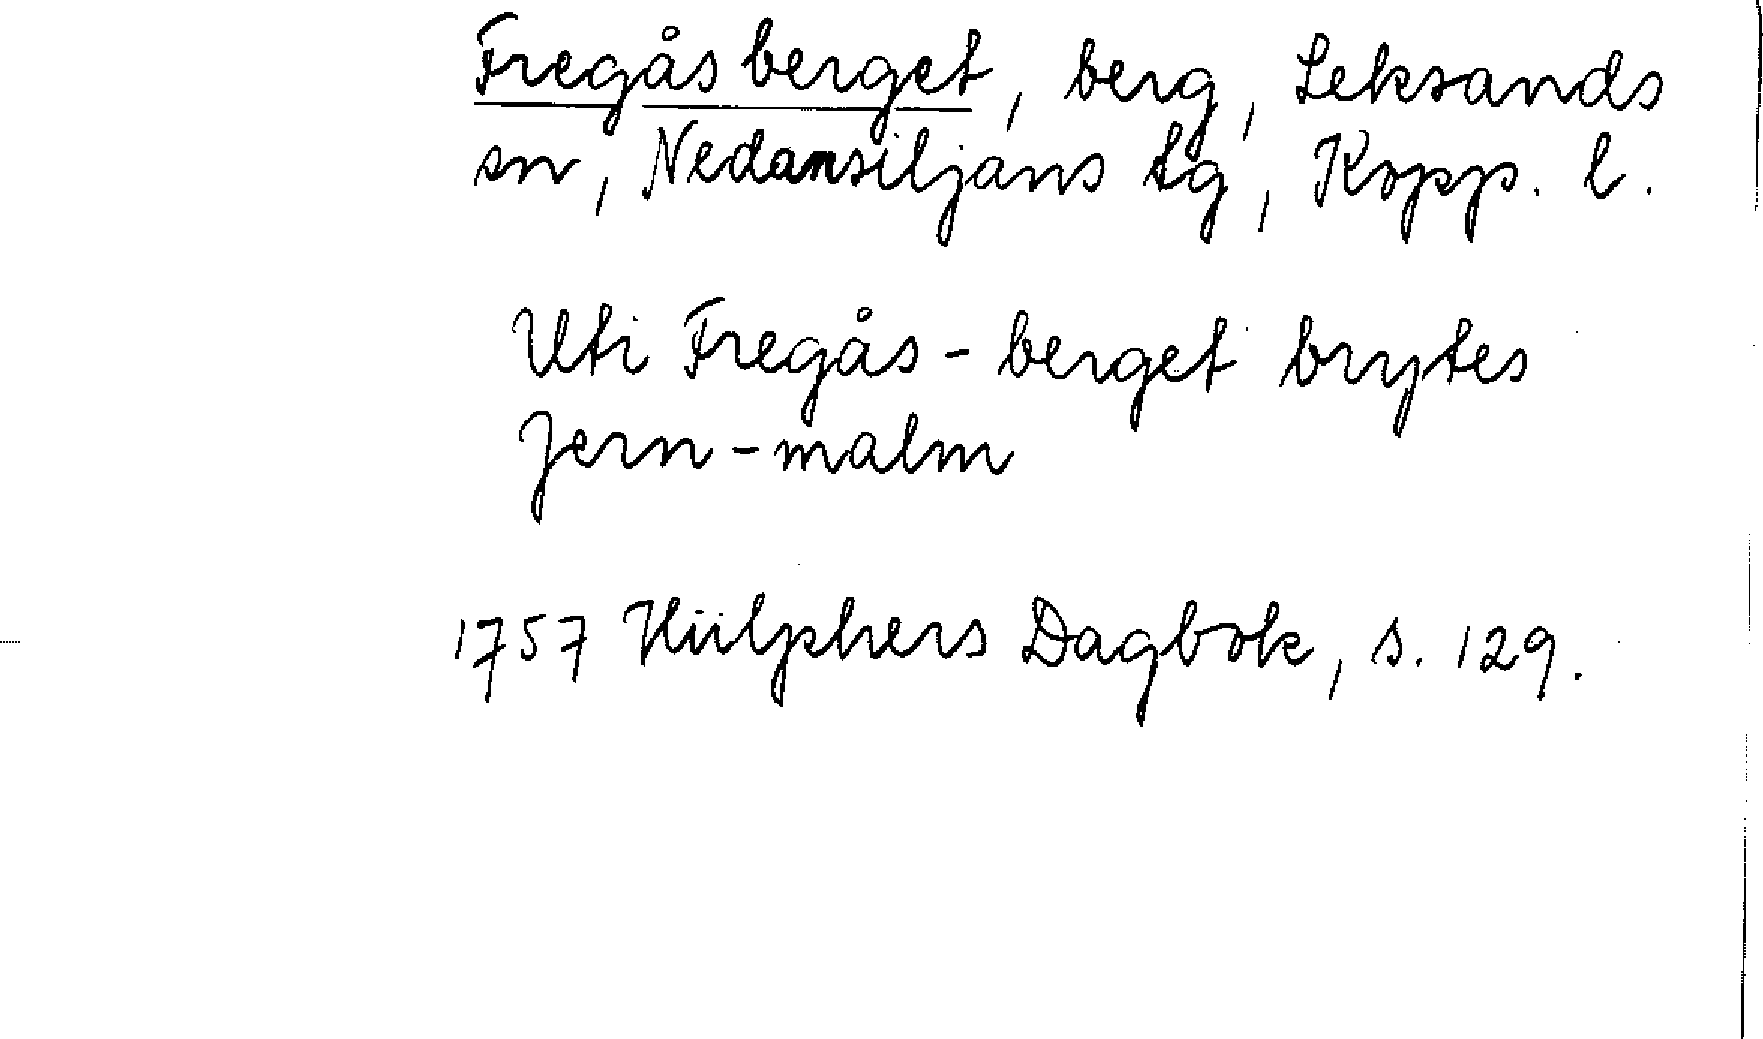 Fregåsberget, berg, Leksands
sn, Nedansiljans tg, Kopp. l.
Uti Fregås-berget brytes
Jern-malm
1757 Hülphers Dagbok, s. 129.